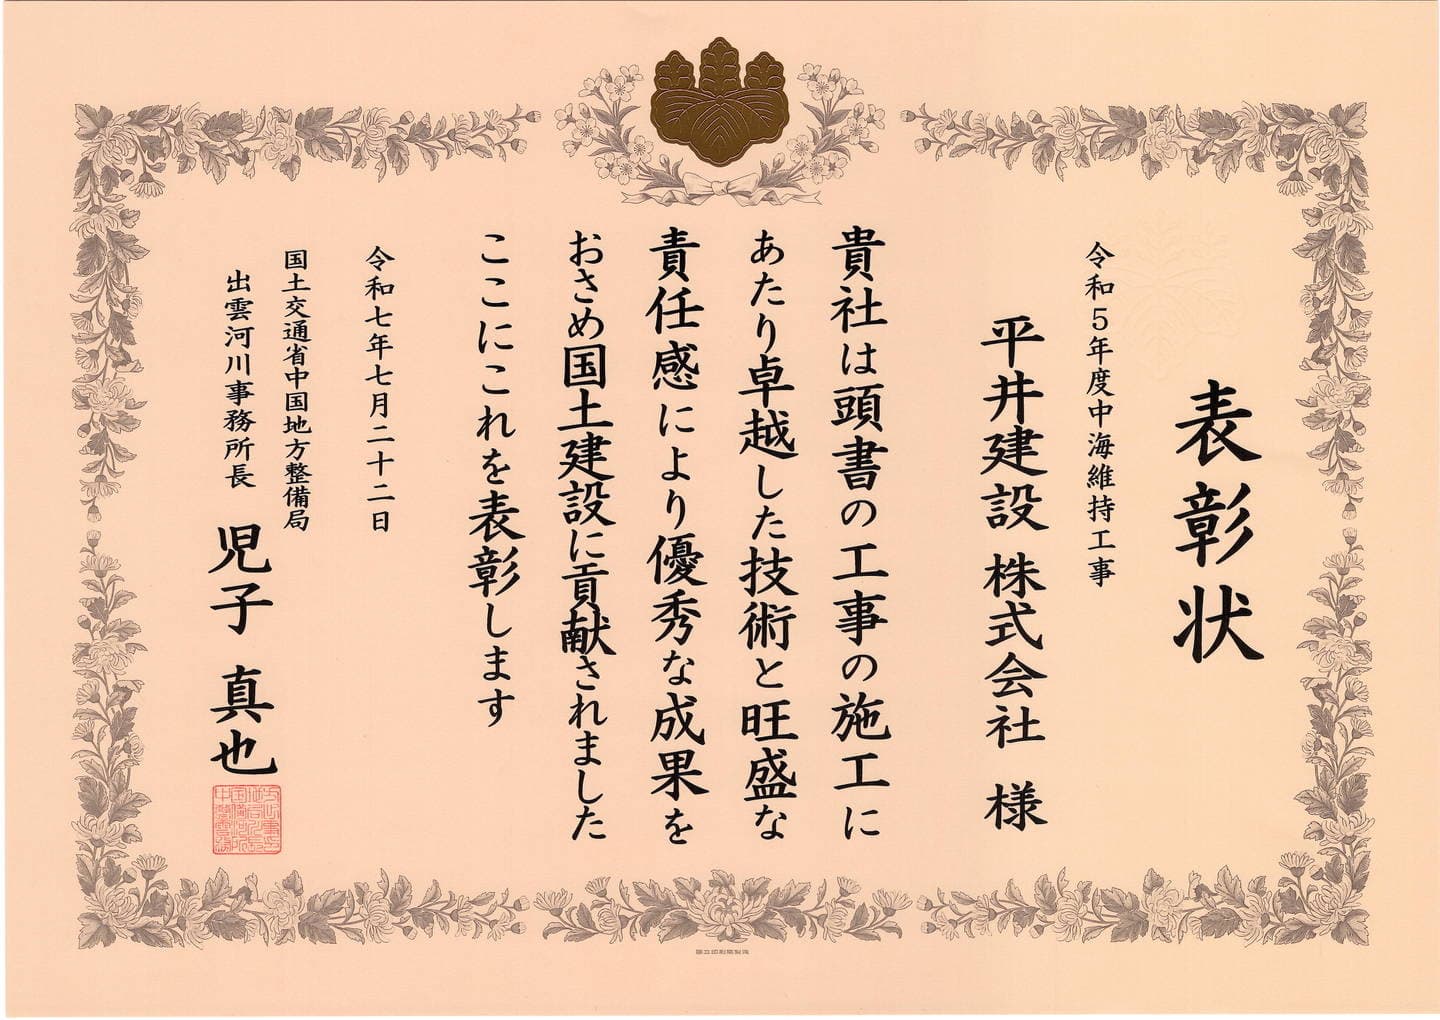 表彰状
令和５年度中海維持工事
平井建設 株式会社 様
貴社は頭書の工事の施工に
あたり卓越した技術と旺盛な
責任感により優秀な成果を
おさめ国土建設に貢献されました
ここにこれを表彰します
令和七年七月二十二日
国土交通省中国地方整備局
出雲河川事務所長 児子 真也
国立印刷局製造